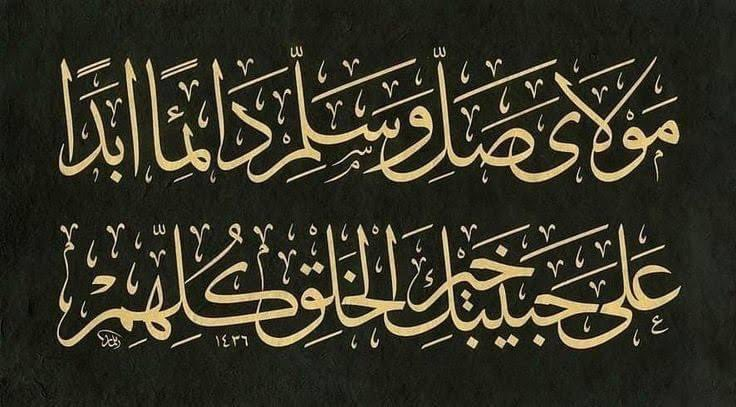 مَوْلَايَ صَلِّ وَسَلِّمْ دَائِمًا اَبَدًا
عَلَى حَبِيبِكَ خَيْرِ الْخَلْقِ كُلِّهِمْ
١٤٣٦